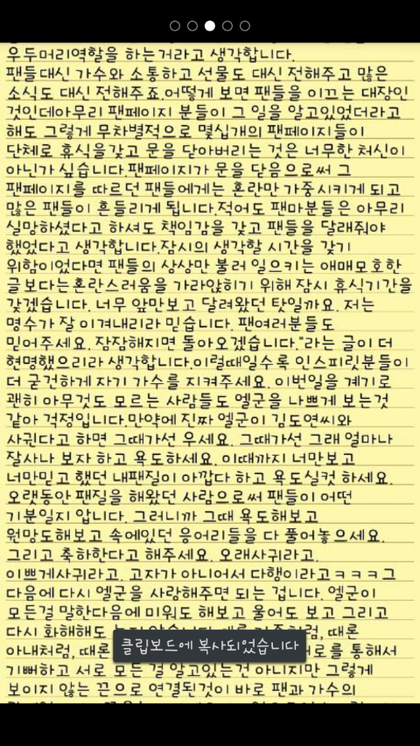 우두머리역할을 하는거라고 생각합니다.
팬들대신 가수와 소통하고 선물도 대신 전해주고 많은
소식도 대신 전해주죠.어떻게 보면 팬들을 이끄는 대장인
것인데아무리 팬페이지 분들이 그 일을 알고있었더라고
해도 그렇게 무차별적으로 몇십개의 팬페이지들이
단체로 휴식을갖고 문을 닫아버리는 것은 너무한 처신이
아닌가 싶습니다.팬페이지가 문을 닫음으로써 그
팬페이지를 따르던 팬들에게는 혼란만 가중시키게 되고
많은 팬들이 흔들리게 됩니다.적어도 팬마분들은 아무리
실망하셨다고 하셔도 책임감을 갖고 팬들을 달래줘야
했었다고 생각합니다.잠시의 생각할 시간을 갖기
위함이었다면 팬들의 상상만 불러 일으키는 애매모호한
글보다는혼란스러움을 가라앉히기 위해 잠시 휴식기간을
갖겠습니다. 너무 앞만보고 달려왔던 탓일까요. 저는
명수가 잘 이겨내리라 믿습니다. 팬여러분들도
믿어주세요. 잠잠해지면 돌아오겠습니다."라는 글이 더
현명했으리라 생각합니다.이럴때일수록 인스피릿분들이
더 굳건하게 자기 가수를 지켜주세요. 이번일을 계기로
괜히 아무것도 모르는 사람들도 엘군을 나쁘게 보는것
같아 걱정입니다.만약에 진짜 엘군이 김도연씨와
사귄다고 하면 그때가선 우세요. 그때가선 그래 얼마나
잘사나 보자 하고 욕도하세요. 이때까지 너만보고
너만믿고 했던 내팬질이 아깝다 하고 욕도실컷 하세요.
오랫동안 팬질을 해왔던 사람으로써 팬들이 어떤
기분일지 압니다. 그러니까 그때 욕도해보고
원망도해보고 속에있던 응어리들을 다 풀어놓으세요.
그리고 축하한다고 해주세요. 오래사귀라고.
이쁘게사귀라고. 고자가 아니어서 다행이라고ㅋㅋㅋ그
다음에 다시 엘군을 사랑해주면 되는 겁니다. 엘군이
모든걸 말한다음에 미워도 해보고 울어도 보고 그리고
다시 화해해도
아내처럼, 때론
기뻐하고 서로 모든 걸 알고있는건 아니지만 그렇게
보이지 않는 끈으로 연결된것이 바로 팬과 가수의
클립보드에 복사되었습니다